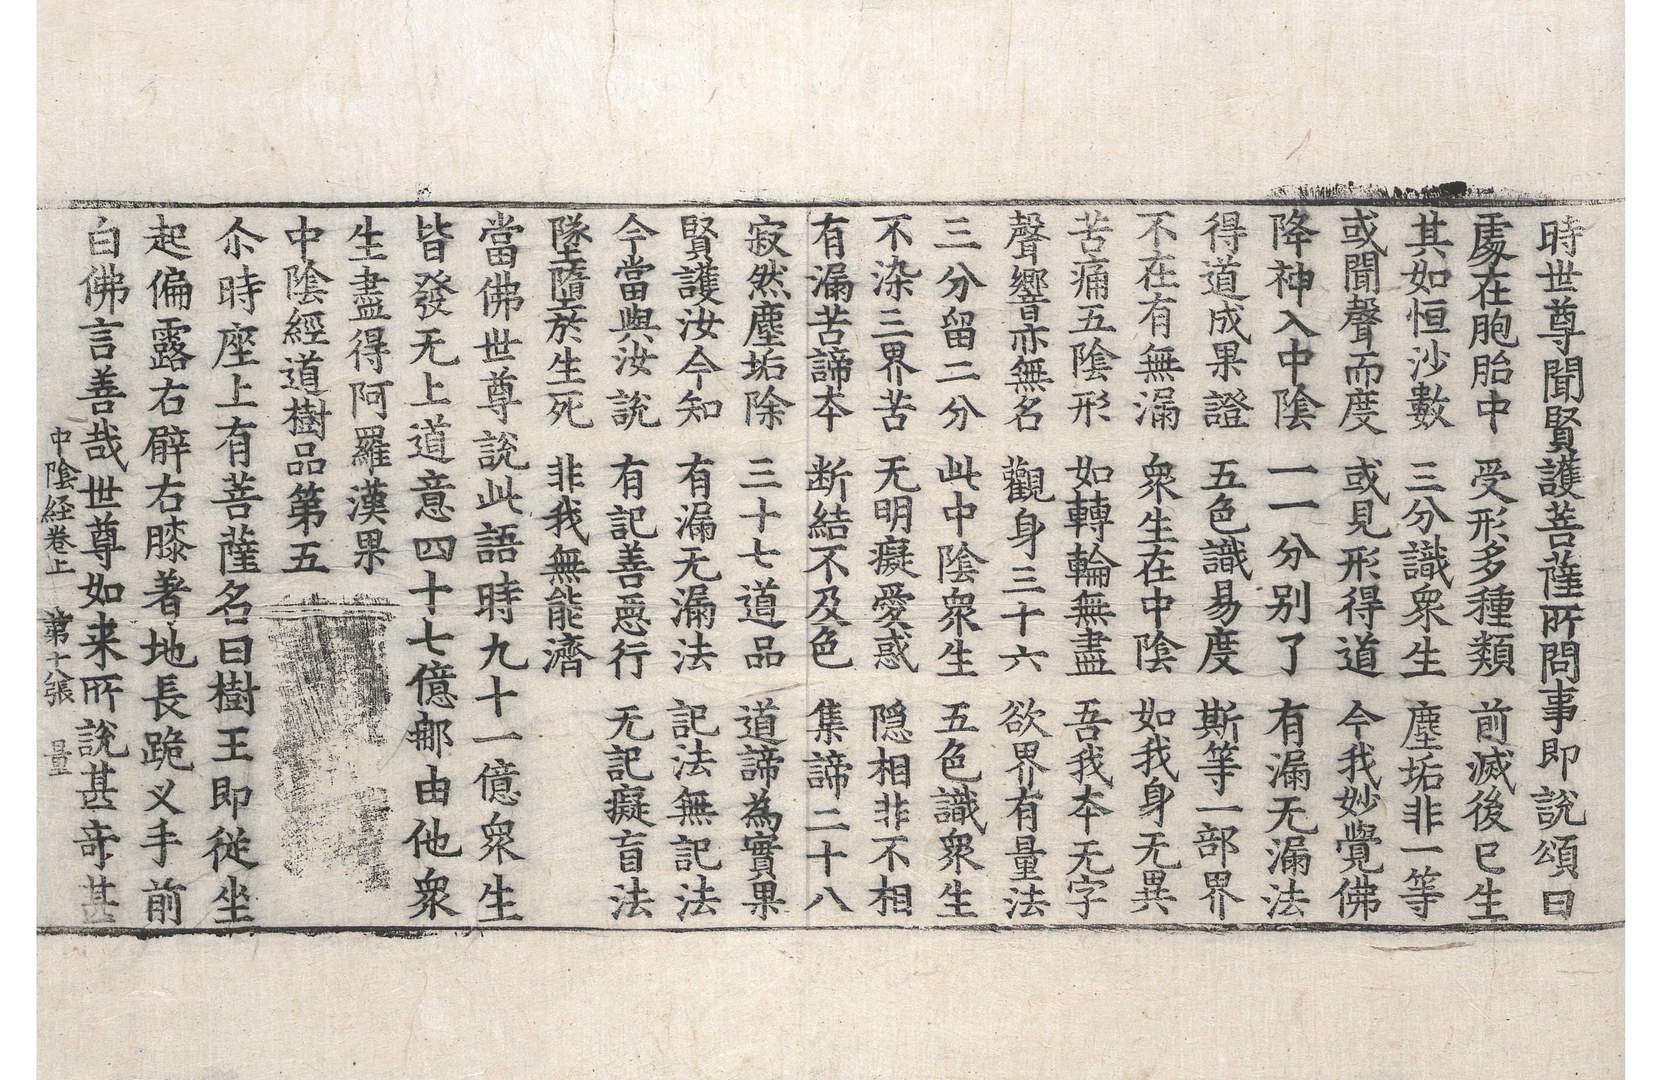 時世尊聞賢護菩薩所問事即說頌曰
處在胞胎中 受形多種類 前滅後已生
其如恒沙數 三分識衆生 塵垢非一等
或聞聲而度 或見形得道 今我妙覺佛
降神入中陰 一一分别了 有漏无漏法
得道成果證 五色識易度 斯等一部界
不在有無漏 衆生在中陰 如我身无異
苦痛五陰形 如轉輪無盡 吾我本无字
聲響亦無名 觀身三十六 欲界有量法
三分留二分 此中陰衆生 五色識衆生
不染三界苦 无明癡愛惑 隱相非不相
有漏苦諦本 断結不及色 集諦二十八
寂然塵垢除 三十七道品 道諦為實果
賢護汝今知 有漏无漏法 記法無記法
今當與汝說 有記善惡行 无記癡盲法
墜墮於生死 非我無能濟
當佛世尊說此語時九十一億衆生
皆發无上道意四十七億那由他衆
生盡得阿羅漢果
中陰經道樹品第五
尒時座上有菩薩名曰樹王即從坐
起偏露右臂右膝著地長跪叉手前
白佛言善哉世尊如来所說甚奇甚
中陰経卷上 第十八張 量